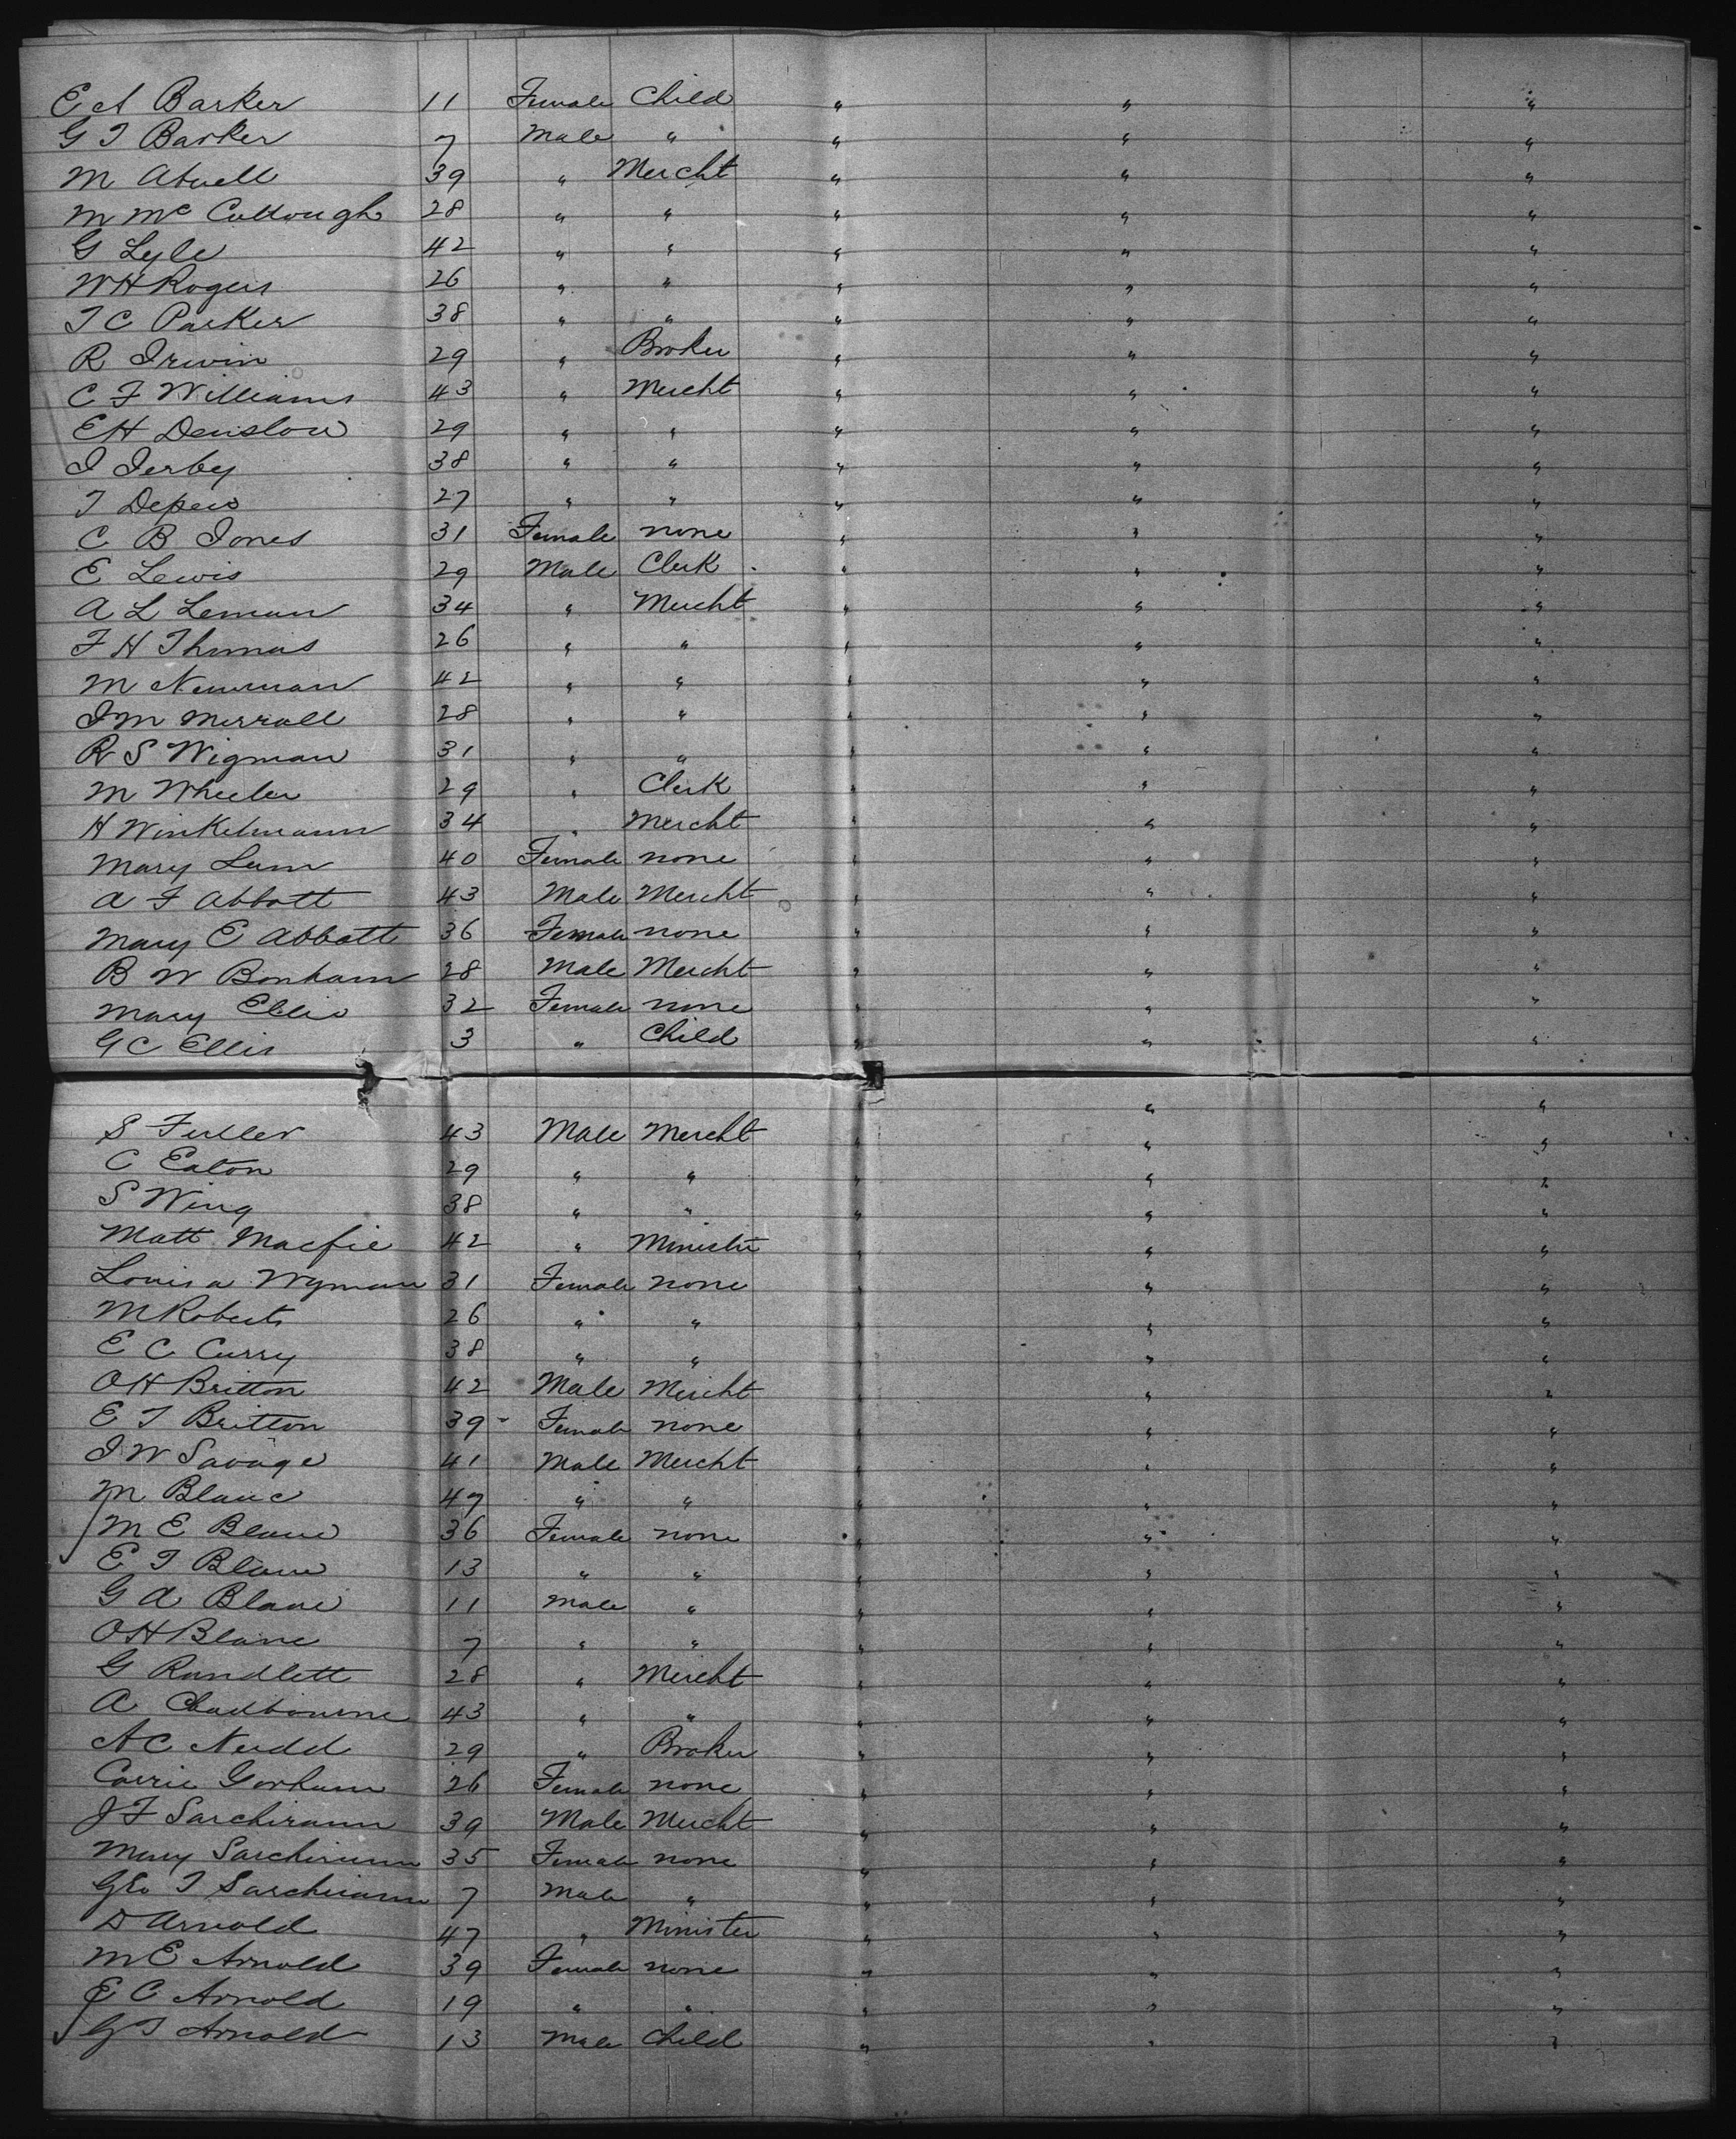 E A Barker 11 Female Child " " "
G T Barker 7 Male " " " "
M Atwell 39 " Mercht " " "
M Mc Cullough 28 " " " " "
G Lyle 42 " " " " "
W H Rogers 26 " " " " "
T C Parker 38 " " " " "
R Irwin 29 " Broker " " "
C F Williams 43 " Mercht " " "
E H Denslow 29 " " " " "
I Ierby 38 " " " " "
T Depew 27 " " " " "
C B Jones 31 Female none " " "
E Lewis 29 Male Clerk " " "
A L Leman 34 " Mercht " " "
F H Thomas 26 " " " " "
M Newman 42 " " " " "
J M Merrall 28 " " " " "
R S Wigman 31 " " " " "
M Wheeler 29 " Clerk " " "
H Winkelmann 34 " Mercht " " "
Mary Lum 40 Female none " " "
A F Abbott 43 Male Mercht " " "
Mary E Abbott 36 Female none " " "
B W Bonham 28 Male Mercht " " "
Mary Ellis 32 Female none " " "
G C Ellis 3 " Child " " "
S Fuller 43 Male Mercht " " "
C Eaton 29 " " " " "
S Wing 38 " " " " "
Matt Macfie 42 " Minister " " "
Louisa Wyman 31 Female none " " "
M Roberts 26 " " " " "
E C Curry 38 " " " " "
O H Britton 42 Male Mercht " " "
E T Britton 39 Female none " " "
J W Savage 41 Male Mercht " " "
M Blanc 47 " " " " "
M E Blanc 36 Female none " " "
E T Blanc 13 " " " " "
G A Blanc 11 Male " " " "
O H Blanc 7 " " " " "
G Rundlett 28 " Mercht " " "
A Chadbourne 43 " " " " "
A C Nudd 29 " Broker " " "
Carrie Gorham 26 Female none " " "
J F 39 Male Mercht " " "
Mary 35 Female none " " "
Geo T 7 Male " " " "
D Arnold 47 " Minister " " "
M E Arnold 39 Female none " " "
E C Arnold 19 " " " " "
G T Arnold 13 Male Child " " "